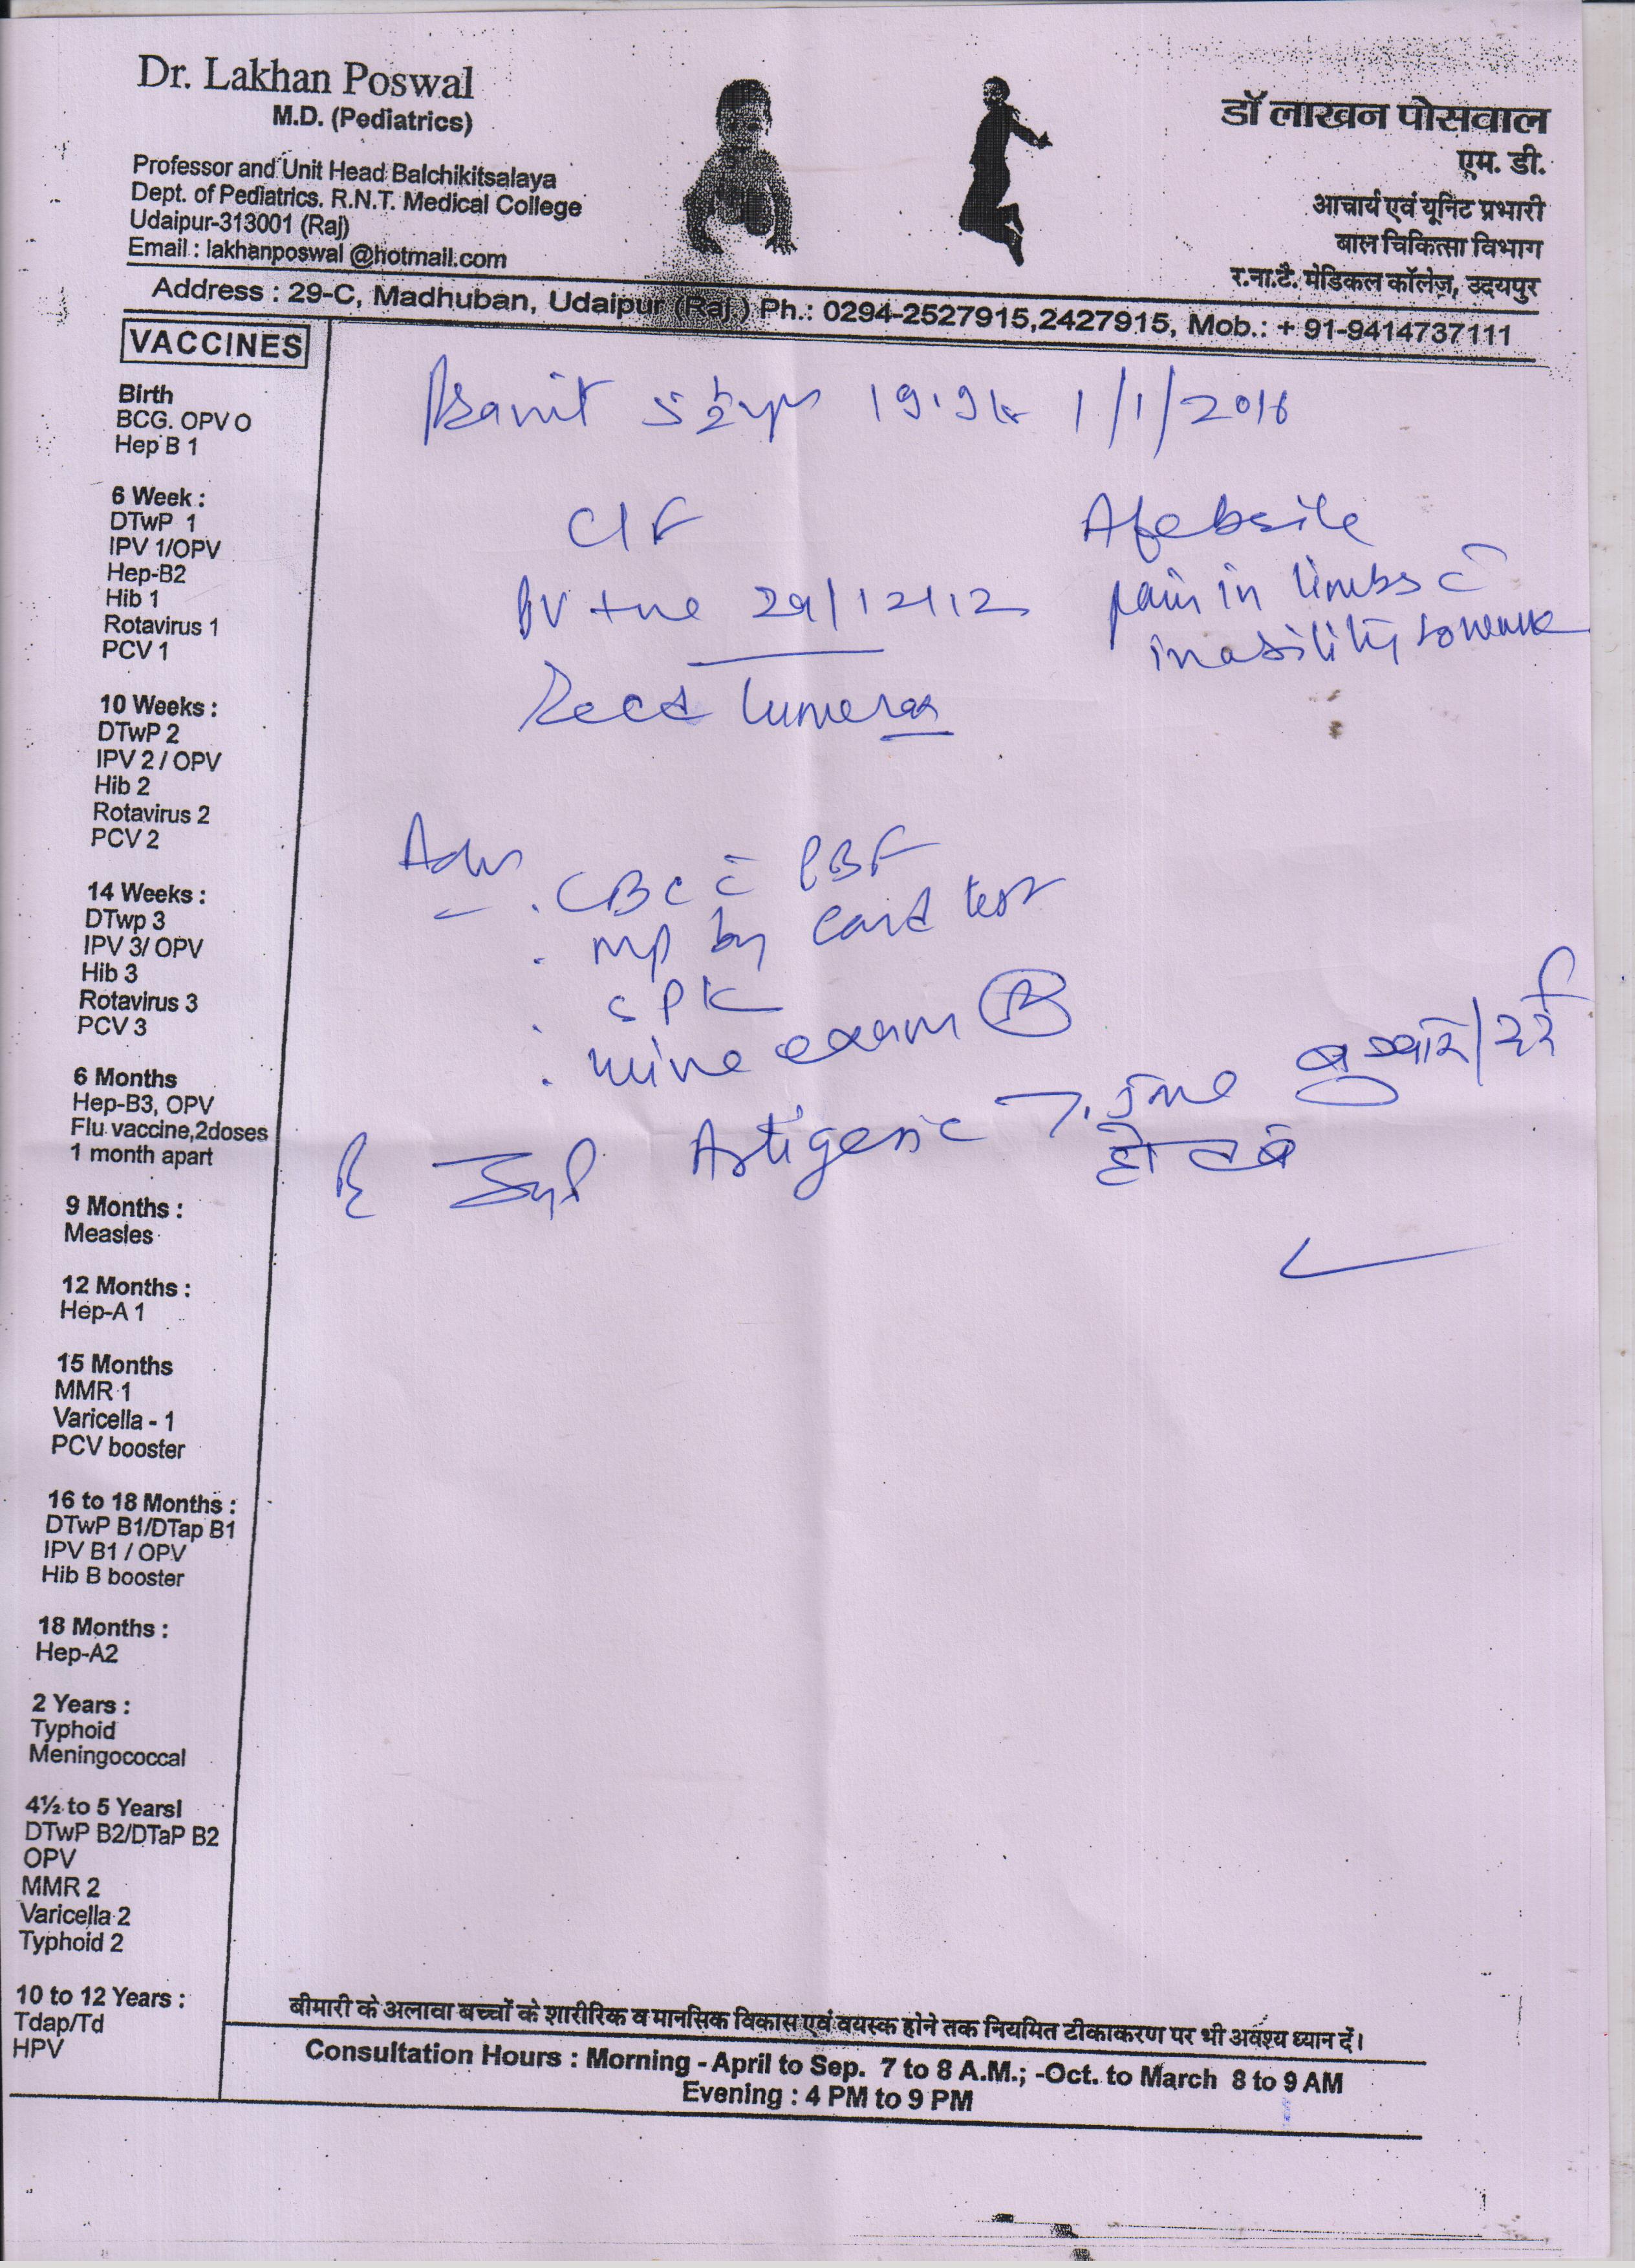 Dr. Lakhan Poswal
M.D. (Pediatrics)
Professor and Unit Head Balchikitsalaya
Dept. of Pediatrics. R.N.T. Medical College
Udaipur-313001 (Raj)
Email : lakhanposwal @hotmail.com
डॉ लाखन पोसवाल
एम. डी.
आचार्य एवं यूनिट प्रभारी
बाल चिकित्सा विभाग
र.ना.टै. मेडिकल कॉलेज, उदयपुर
Address : 29-C, Madhuban, Udaipur (Raj.) Ph.: 0294-2527915,2427915, Mob.: + 91-9414737111
VACCINES
Birth
BCG. OPV O
Hep B 1
6 Week :
DTwP 1
IPV 1/OPV
Hep-B2
Hib 1
Rotavirus 1
PCV 1
10 Weeks :
DTwP 2
IPV 2 / OPV
Hib 2
Rotavirus 2
PCV 2
14 Weeks :
DTwp 3
IPV 3/ OPV
Hib 3
Rotavirus 3
PCV 3
6 Months
Hep-B3, OPV
Flu vaccine,2doses
1 month apart
9 Months :
Measles
12 Months :
Hep-A 1
15 Months
MMR 1
Varicella - 1
PCV booster
16 to 18 Months :
DTwP B1/DTap B1
IPV B1 / OPV
Hib B booster
18 Months :
Hep-A2
2 Years :
Typhoid
Meningococcal
4½ to 5 Yearsl
DTwP B2/DTaP B2
OPV
MMR 2
Varicella 2
Typhoid 2
10 to 12 Years :
Tdap/Td
HPV
5 1/2 yrs 19.9 1/1/2016
Afebrile
PV +ve 29/12/12
pain in limbs c̄
inability to walk
Recd
Adv
. CBC c̄ PBF
. mp by card test
. CPK
. urine exam (R)
Syp Artigesic 7.5ml बुखार/दर्द
हो तब
बीमारी के अलावा बच्चों के शारीरिक व मानसिक विकास एवं वयस्क होने तक नियमित टीकाकरण पर भी अवश्य ध्यान दें।
Consultation Hours : Morning - April to Sep. 7 to 8 A.M.; -Oct. to March 8 to 9 AM
Evening : 4 PM to 9 PM